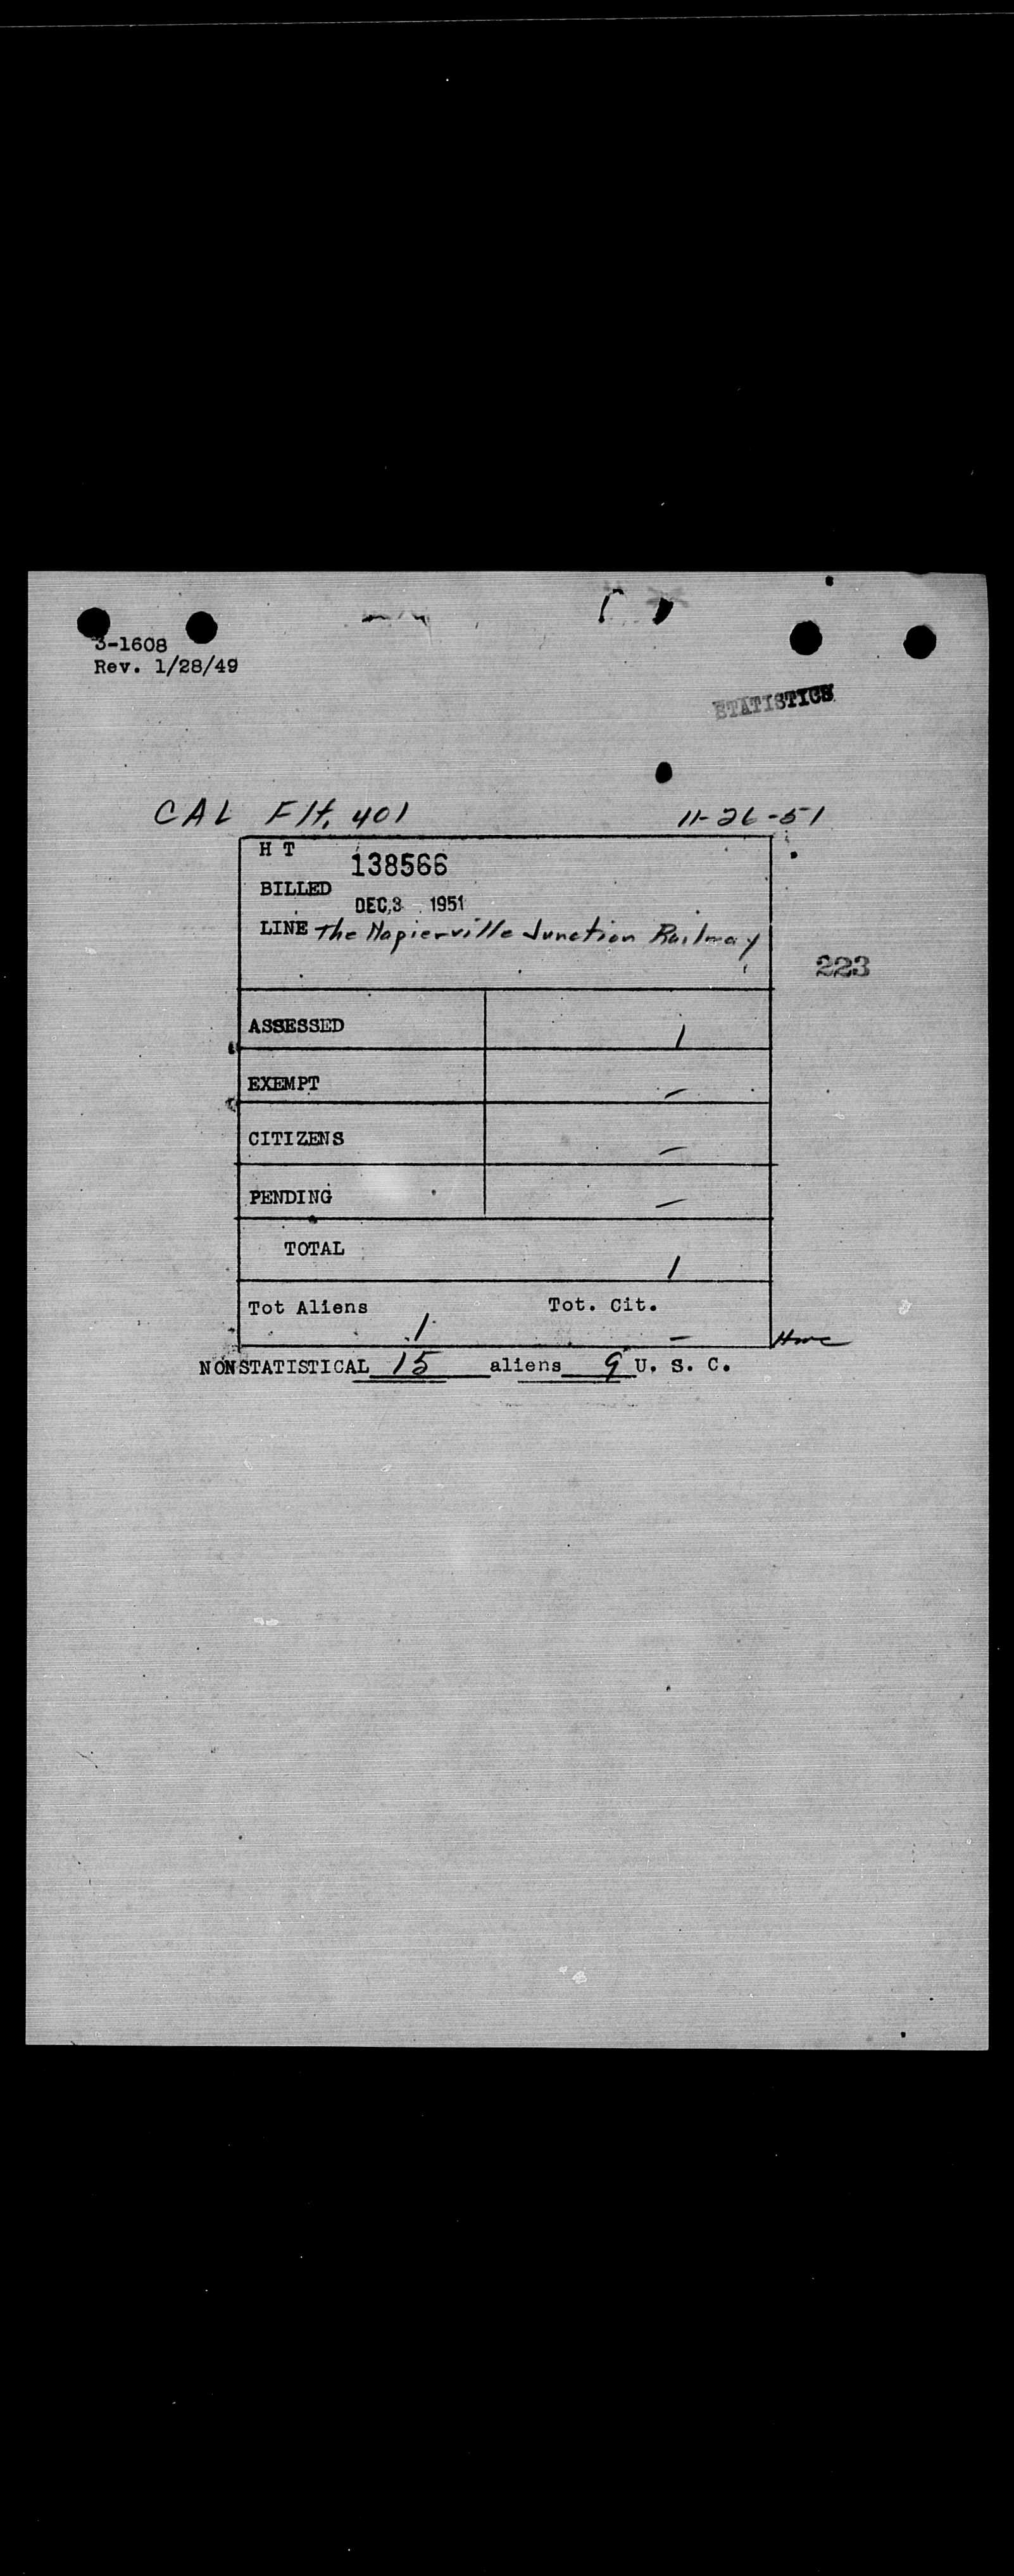 3-1608
Rev. 1/28/49
STATISTICS
CAL Flt. 401 11-26-51
H T 138566
BILLED DEC 3 1951
LINE The Napierville Junction Railway
223
ASSESSED 1
EXEMPT –
CITIZENS –
PENDING –
TOTAL 1
Tot Aliens Tot. Cit.
1 –
NONSTATISTICAL 15 aliens 9 U. S. C.